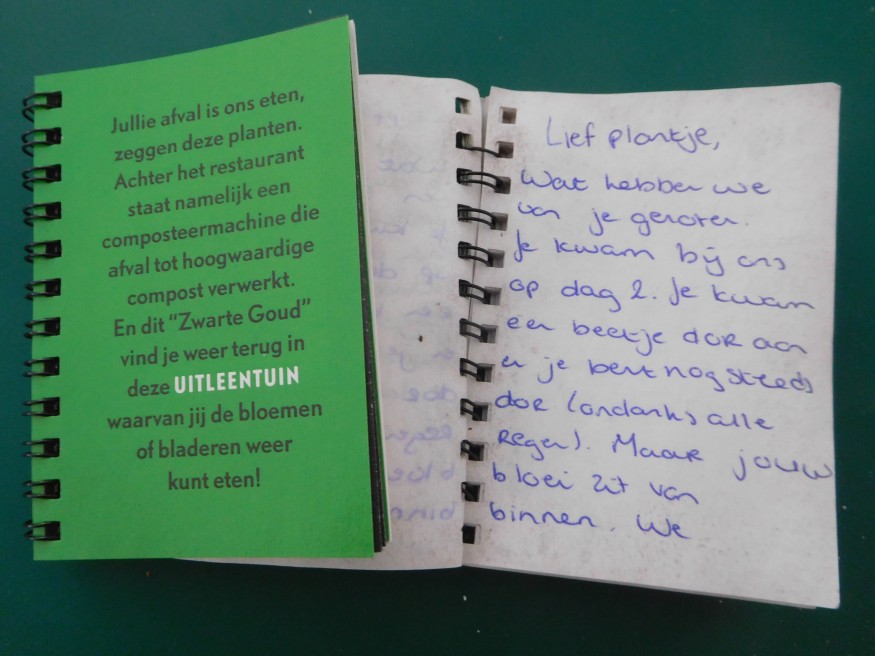 Jullie afval is ons eten,
zeggen deze planten.
Achter het restaurant
staat namelijk een
composteermachine die
afval tot hoogwaardige
compost verwerkt.
En dit “Zwarte Goud”
vind je weer terug in
deze UITLEENTUIN
waarvan jij de bloemen
of bladeren weer
kunt eten!
Lief plantje,
Wat hebben we
van je genoten.
Je kwam bij ons
op dag 2. Je kwam
een beetje dor aan
en je bent nog steeds
dor (ondanks alle
regen). Maar jouw
bloei zit van
binnen. We